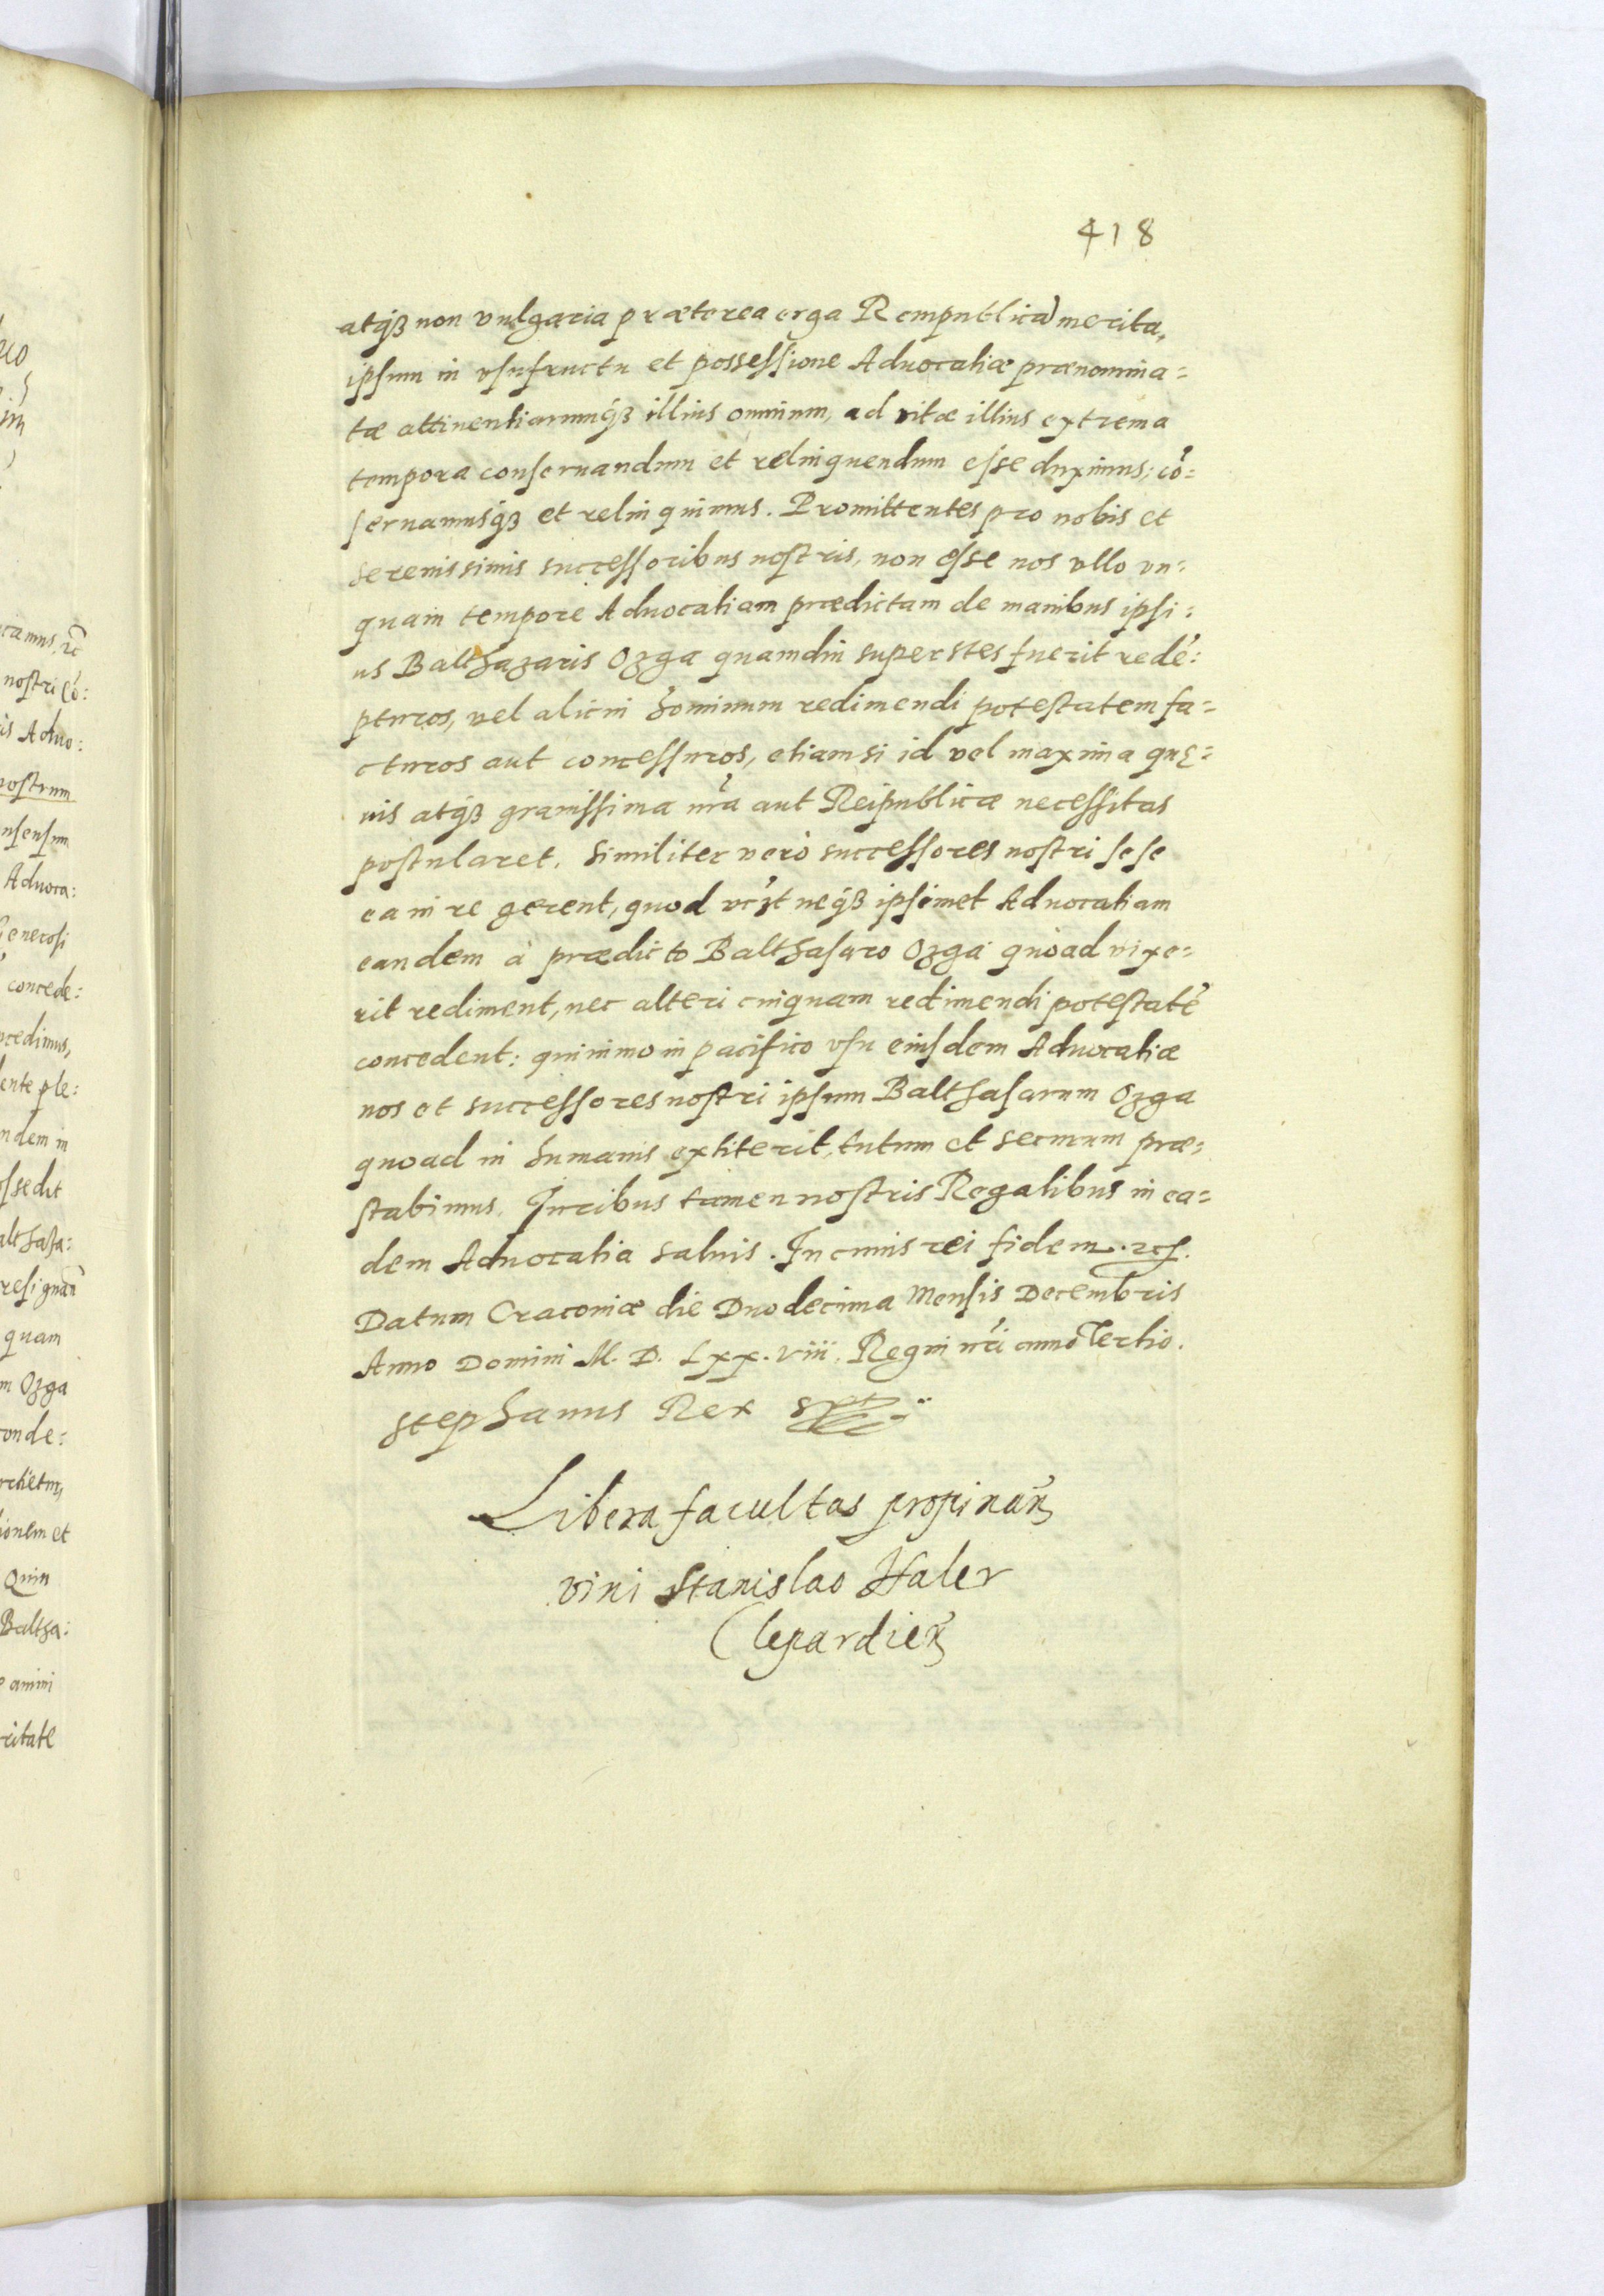 418
atq3 non vulgaria præterea erga Rempublicā merita,
ipsum in vsufructu et possessione Aduocatiæ prænomina=
tæ attinentiarumq3 illius omnium, ad vitæ illius extrema
tempora conseruandum et relinquendum esse duximus; cō=
seruamusq3 et relinquimus. Promittentes pro nobis et
serenissimis successoribus nostris, non esse nos vllo vn=
quam tempore Aduocatiam prædictam de manibus ipsi=
us Balthazaris Ozga quamdiu superstes fuerit redē=
pturos, vel alicui hominum redimendi potestatem fa=
cturos aut concessuros, etiamsi id vel maxima quę=
uis atq3 grauissima nr̄a aut Reipublicæ necessitas
postularet. Similiter verò successores nostri sese
ea in re gerent, quod neq3 ipsimet Aduocatiam
eandem à prædicto Balthasaro Ozga quoad vixe=
rit rediment, nec alteri cuiquam redimendi potestatē
concedent: quinimo in pacifico vsu eiusdem Aduocatiæ
nos et successores nostri ipsum Balthasarum Ozga
quoad in humanis extiterit, tutum et securum præ=
stabimus. Iuribus tamen nostris Regalibus in ea=
dem Aduocatia saluis. In cuius rei fidem.
Datum Cracouiæ die Duodecima Mensis Decembris
Anno Domini M. D. Lxx. viii. Regni nr̄i anno Tertio.
Stephanus Rex
Libera facultas propinan̄
vini Stanislao Haler
Clepardien̄